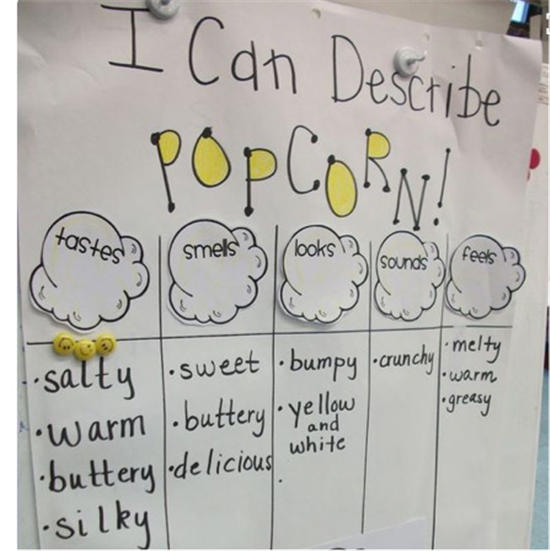 I Can Describe
POPCORN!
tastes
smells
looks
sounds
feels
·salty
·warm
·buttery
·silky
·sweet
·buttery
·delicious
·bumpy
·yellow
and
white
·
·crunchy
·melty
·warm
·greasy